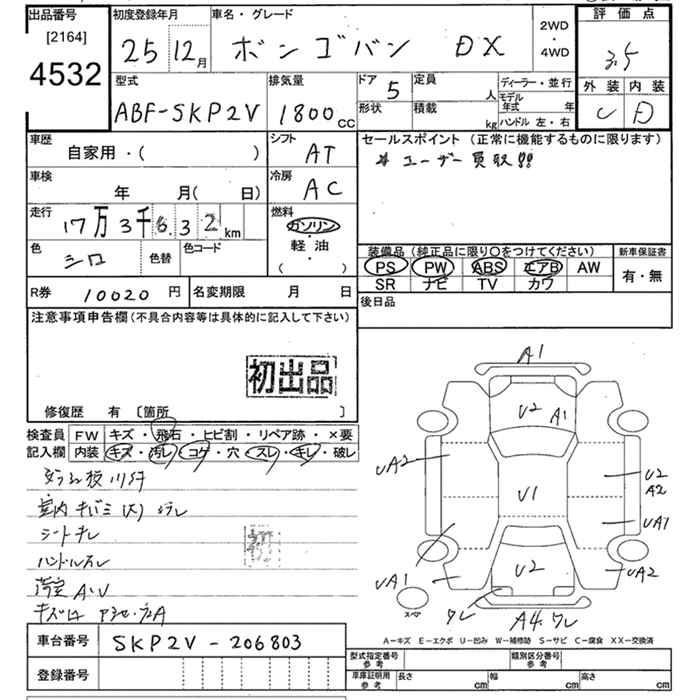 出品番号
[2164]
4532
初度登録年月
25 12月
車名・グレード
ボンゴバン DX
2WD
・
4WD
評価点
3.5
外装 内装
C D
型式
ABF-SKP2V
排気量
1800cc
ドア 5
形状
定員 人
積載 kg
ディーラー・並行
モデル年式 年
ハンドル 左・右
車歴
自家用・( )
シフト
AT
セールスポイント (正常に機能するものに限ります)
ユーザー買取!!
車検
年 月( 日)
冷房
AC
走行
17万3千6.32km
燃料
ガソリン
・
軽油
( )
色
シロ
色替
色コード
装備品 (純正品に限り○をつけてください)
PS PW ABS エアB AW
SR ナビ TV カワ
新車保証書
有・無
R券 10020円
名変期限 月 日
後日品
注意事項申告欄 (不具合内容等は具体的に記入して下さい)
初出品
修復歴 有 〔箇所 〕
検査員記入欄
FW キズ・飛石・ヒビ割・リペア跡・×要
内装 キズ・汚レ・コゲ・穴・スレ・キレ・破レ
シートキレ
ハンドルスレ
A1
U2 A1
UA2
U2
A2
U1
UA1
UA1
U2
UA2
スペア
ワレ
A4.ワレ
A-キズ E-エクボ U-凹み W-補修跡 S-サビ C-腐食 XX-交換済
車台番号
SKP2V-206803
登録番号
型式指定番号
参考
類別区分番号
参考
車庫証明用
参考
長さ cm
幅 cm
高さ cm